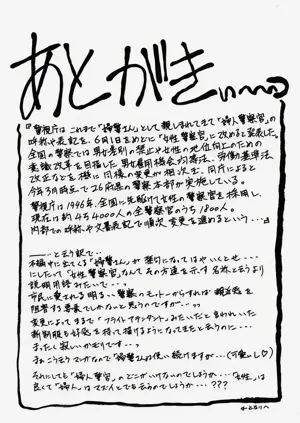 あとがきぃ〜〜
『警視庁は これまで「婦警さん」として親しまれてきて「婦人警察官」の
呼称や表記を、6月1日をめどに「女性警察官」に改めると発表した。
全国の警察では男女差別の禁止や女性の地位向上のための
意識改革を目指した男女雇用機会均等法、労働基準法
改正などを機に同様の変更が相次ぎ、同庁によると
今年3月時点で26府県の警察本部が実施している。
警視庁は1946年、全国に先駆けて女性の警察官を採用し、
現在は約4万4000人の全警察官のうち1800人。
内部での呼称や文書表記で順次変更を進めるという…』
…と言う訳で…
本編中に出てくる「婦警さん」が禁句になってはやいくとせ…
にしたって「女性警察官」なんてその方達を示す名称と言うより
説明用語みたいで…。
市民に愛される明るい警察のモットーからすれば親近感を
阻害する要素でしかないと思うのですが…。
変更によってまるで「フライトアテンダント」みたいだと言われいた
新制服も好感を持って描けるようになってましたと言うのに…
まったく寂しいかぎりです…。
まぁこう言うマンガなので「婦警さん」は使い続けますが…(可愛いし♡)
それにしても「婦人警官」のどこがいけないのでしょうか…「女性」は
良くて「婦人」はマズイとでも言うのでしょうか…???